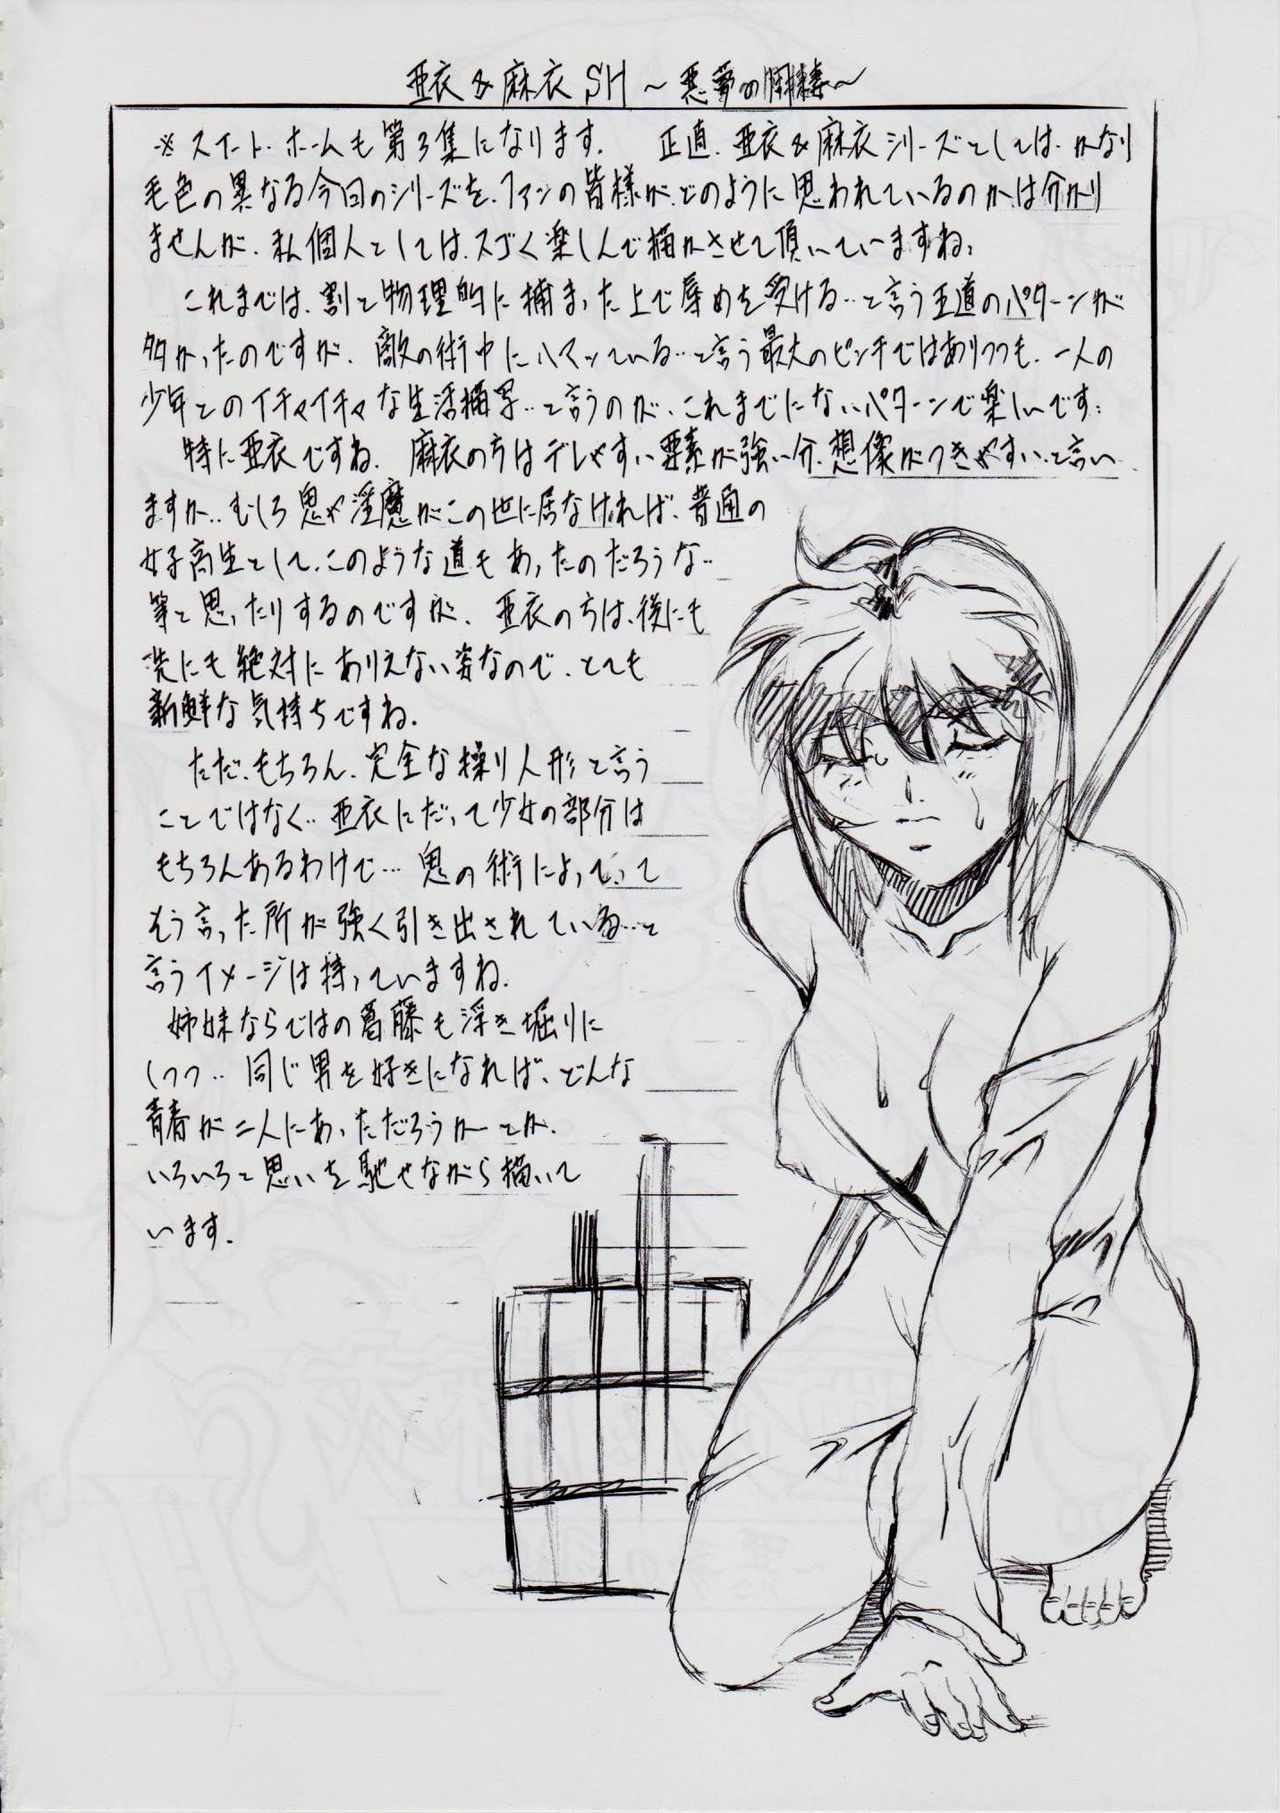 亜衣&麻衣SH～悪夢の開幕～
※スイート・ホームも第3集になります. 正直、亜衣&麻衣シリーズとしては、かなり
毛色の異なる今回のシリーズを、ファンの皆様が、どのように思われているのかは分かり
ませんが、私個人としては、スゴく楽しんで描かさせて頂いていますね.
これまでは、割と物理的に捕まった上で辱めを受ける‥と言う王道のパターンが
多かったのですが、敵の術中にハマッている‥と言う最大のピンチではありつつも、一人の
少年とのイチャイチャな生活描写‥と言うのが、これまでにないパターンで楽しいです.
特に亜衣ですね. 麻衣のちはデレやすい要素が強い分、想像がつきやすい、と言い
ますか‥むしろ鬼や淫魔がこの世に居なければ、普通の
女子高生として、このような道もあったのだろうな‥
等と思ったりするのですが、亜衣のちは、後にも
先にも絶対にありえない姿なので、とても
新鮮な気持ちですね.
ただ、もちろん、完全な操り人形と言う
ことではなく‥亜衣にだって少女の部分は
もちろんあるわけで…鬼の術によっていって
そう言った所が強く引き出されている‥と
言うイメージは持っていますね.
姉妹ならではの葛藤も浮き堀りに
しつつ‥同じ男を好きになれば、どんな
青春が二人にあっただろうかーとか.
いろいろと思いを馳せながら描いて
います.